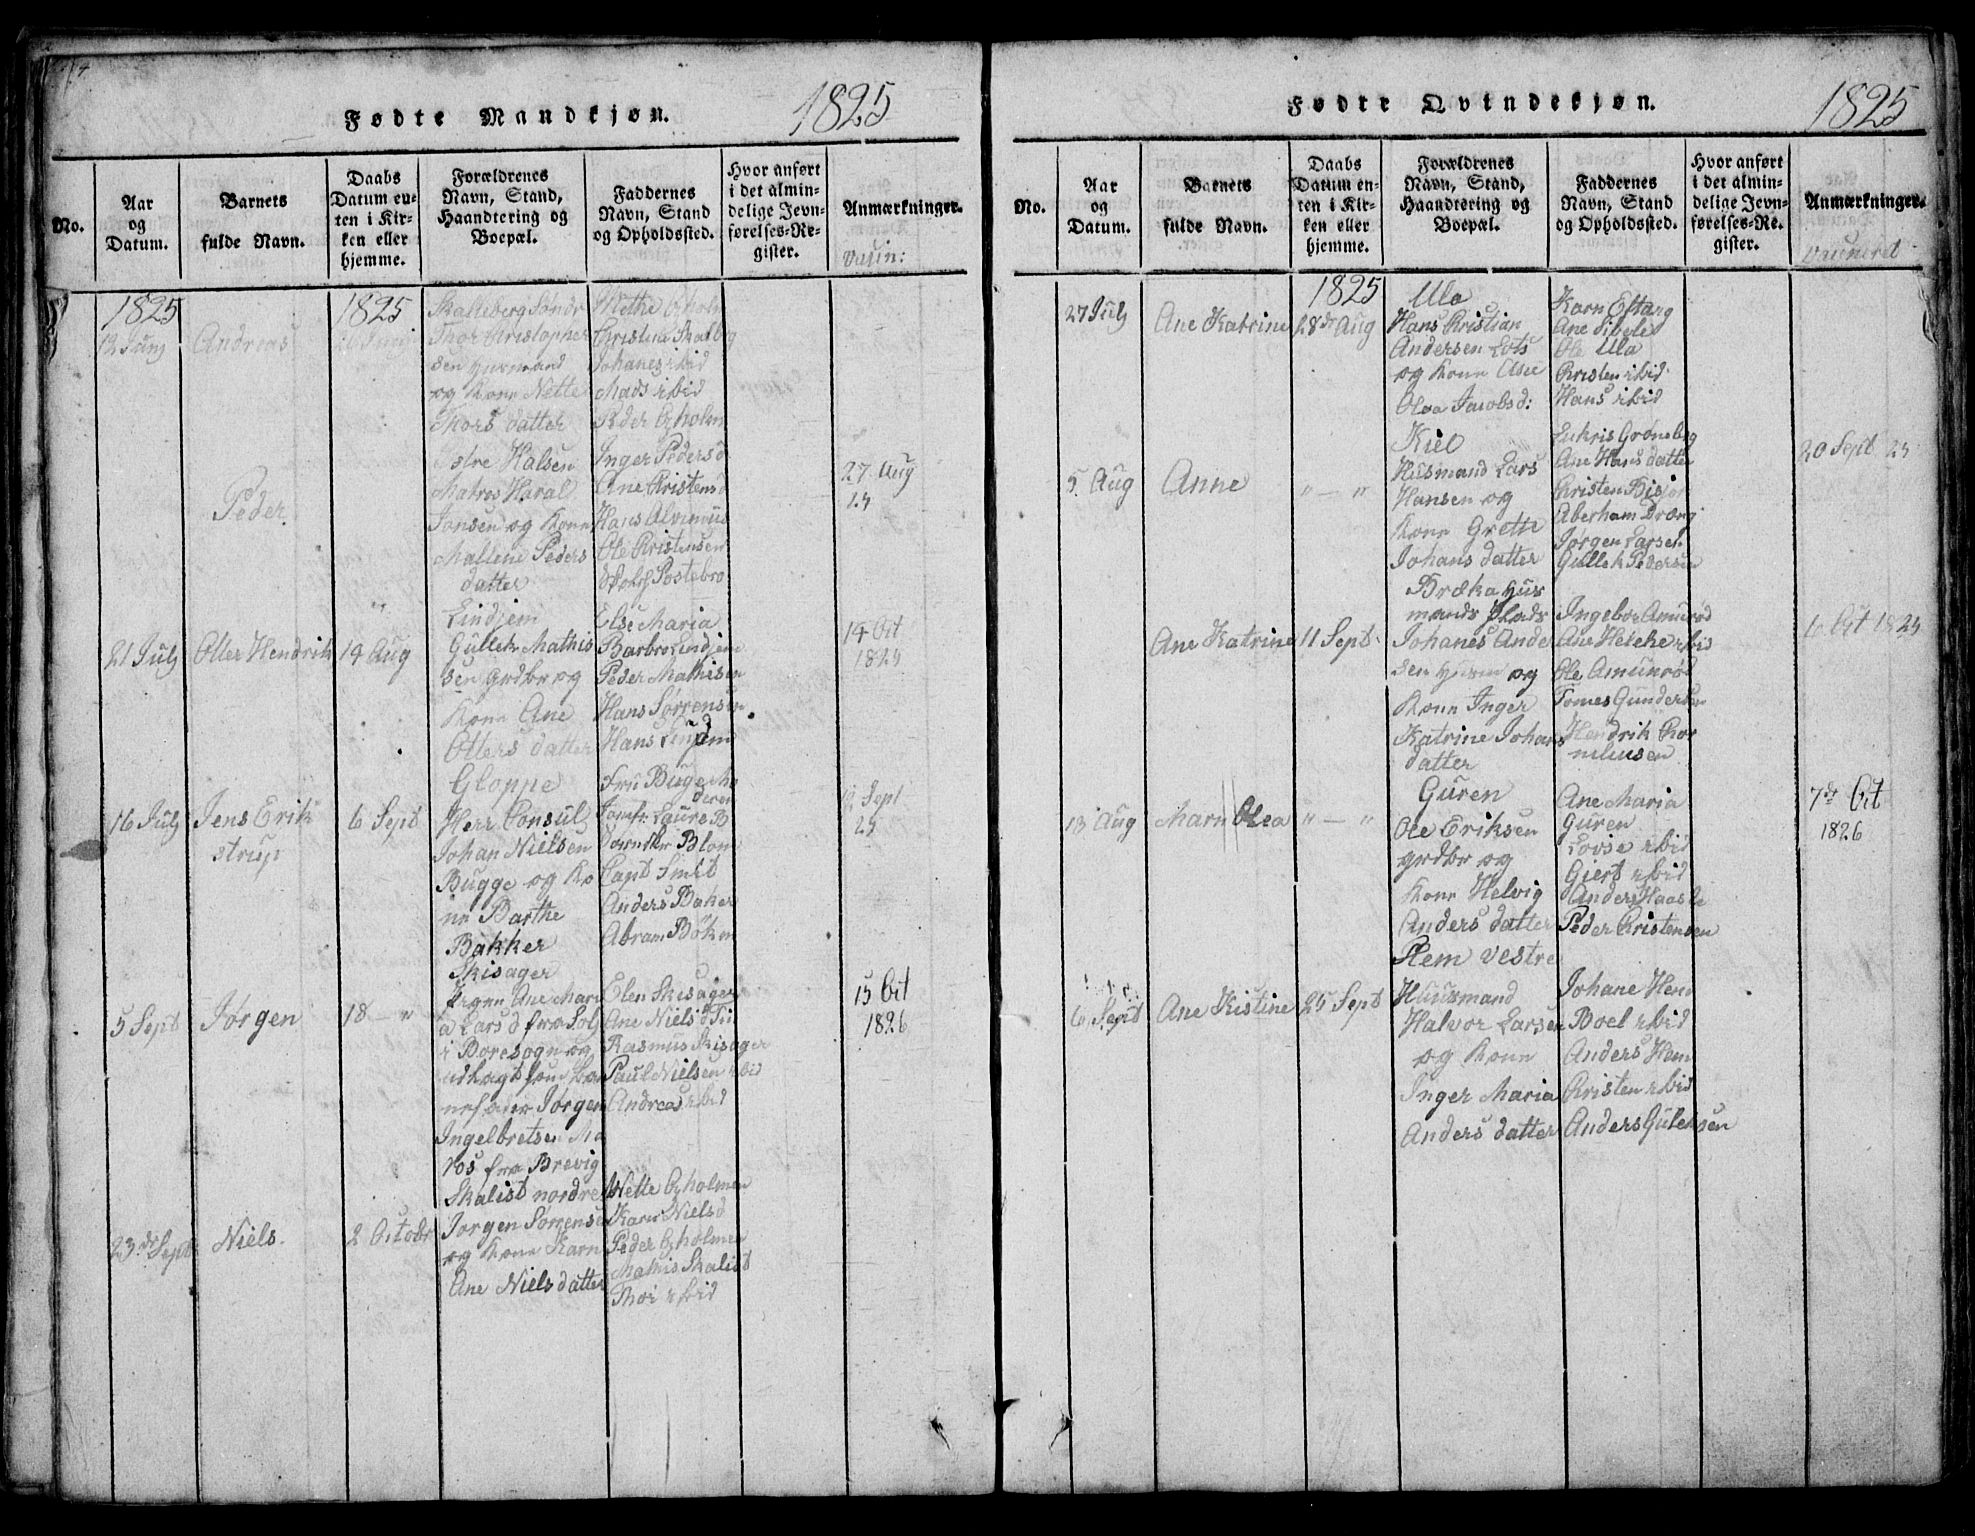 Fødte Mandkjøn. 1825
No.
Aar og Datum.
Barnets fulde Navn.
Daabs Datum enten i Kirken eller hjemme.
Forældrenes Navn, Stand, Haandtering og Boepæl.
Faddernes Navn, Stand og Opholdssted.
Hvor anført i det almindelige Jevnførelses-Register.
Anmærkninger.
1825
12 Junj
Andreas
1825
Thor Kristopher
sen Husmand
og Kone Nette
Thors datter
Methe
Johanes ibid
Mads ibid
Peder
Peder
Østre Halsen
Matros Haral
Jansen og Kone
Mallene Peders
datter
Inger Peders d
Ane Kristens d
Hans
Ole Kristensen
27 Aug
25
21 Julj
Otter Hendrik
14 Aug
Lindjem
Gullek Mathis
sen grdbr og
Kone Ane
Otters datter
Else Maria
Barbro Lindjem
Peder Mathisen
Hans Sørrensen
Hans Lindjem
14 Oct
1825
16 Julj
Jens Erik
strup
6 Sept
Gloppe
Herr Consul
Johan Nielsen
Bugge og Ko
ne Barthe
Bakker
Fru Bugge Mo
deren
Jomfr: Laure B
Blom
Capt Smit
Anders Baker
Abram Böken
12 Sept
25
5 Sept
Jørgen
18 — "
Skisager
Pigen Ane Mari
a Lars d fra
i
udlagt som bar
nefader Jørgen
Ingelbretsen Ma
ros fra Brevig
Elen Skisager
Ane Niels d
Rasmus Skisager
Paul Nielsen ibid
Andreas ibid
15 Oct
1826
23de Sept
Niels
2 October
Skalist nordre
Jørgen Sørrensen
og Kone Karn
Ane Niels datter
Nette Ozholmen
Karn Niels d
Peder Ozholmen
Mathis Skalist
Thor ibid
Fødte Qvindekjøn. 1825
No.
Aar og Datum.
Barnets fulde Navn.
Daabs Datum enten i Kirken eller hjemme.
Forældrenes Navn, Stand, Haandtering og Boepæl.
Faddernes Navn, Stand og Opholdssted.
Hvor anført i det almindelige Jevnførelses-Register.
Anmærkninger.
1825
27 Julj
Ane Katrine
28de Aug
Ula
Hans Kristian
Andersen Lots
og Kone Ane
Olea Jacobs d:
Karn Eftang
Ane Sibele
Ole Ula
Kristen ibid
Hans ibid
5 Aug
Anne
" — "
Kiel
Husmand Lars
Hansen og
Kone Grethe
Johans datter
Ane Hans datter
Jørgen Larsen
Gullek Pedersen
20 Sept 25
Ane Katrine
11 Sept
Bræka Hus
mands Plads
Johanes Ande
sen Husm og
Kone Inger
Katrine Johans
datter
Ingebor Amunrød
Ane Helehe ibid
Ole Amunrød
Tomes Gundersen
Hendrik Kor
neliusen
6 Oct 1825
13 Aug
Marn Olea
" — "
Guren
Ole Eriksen
grdbr og
Kone Helvig
Anders datter
Ane Maria
Guren
Lovse ibid
Giert ibid
Anders
Peder Kristensen
7de Oct
1826
6 Sept
Ane Kistine
25 Sept
Hem vestre
Huusmand
Halvor Larsen
og Kone
Inger Maria
Anders datter
Johane Hem
Boel ibid
Anders Hem
Kristen ibid
Anders Gulersen